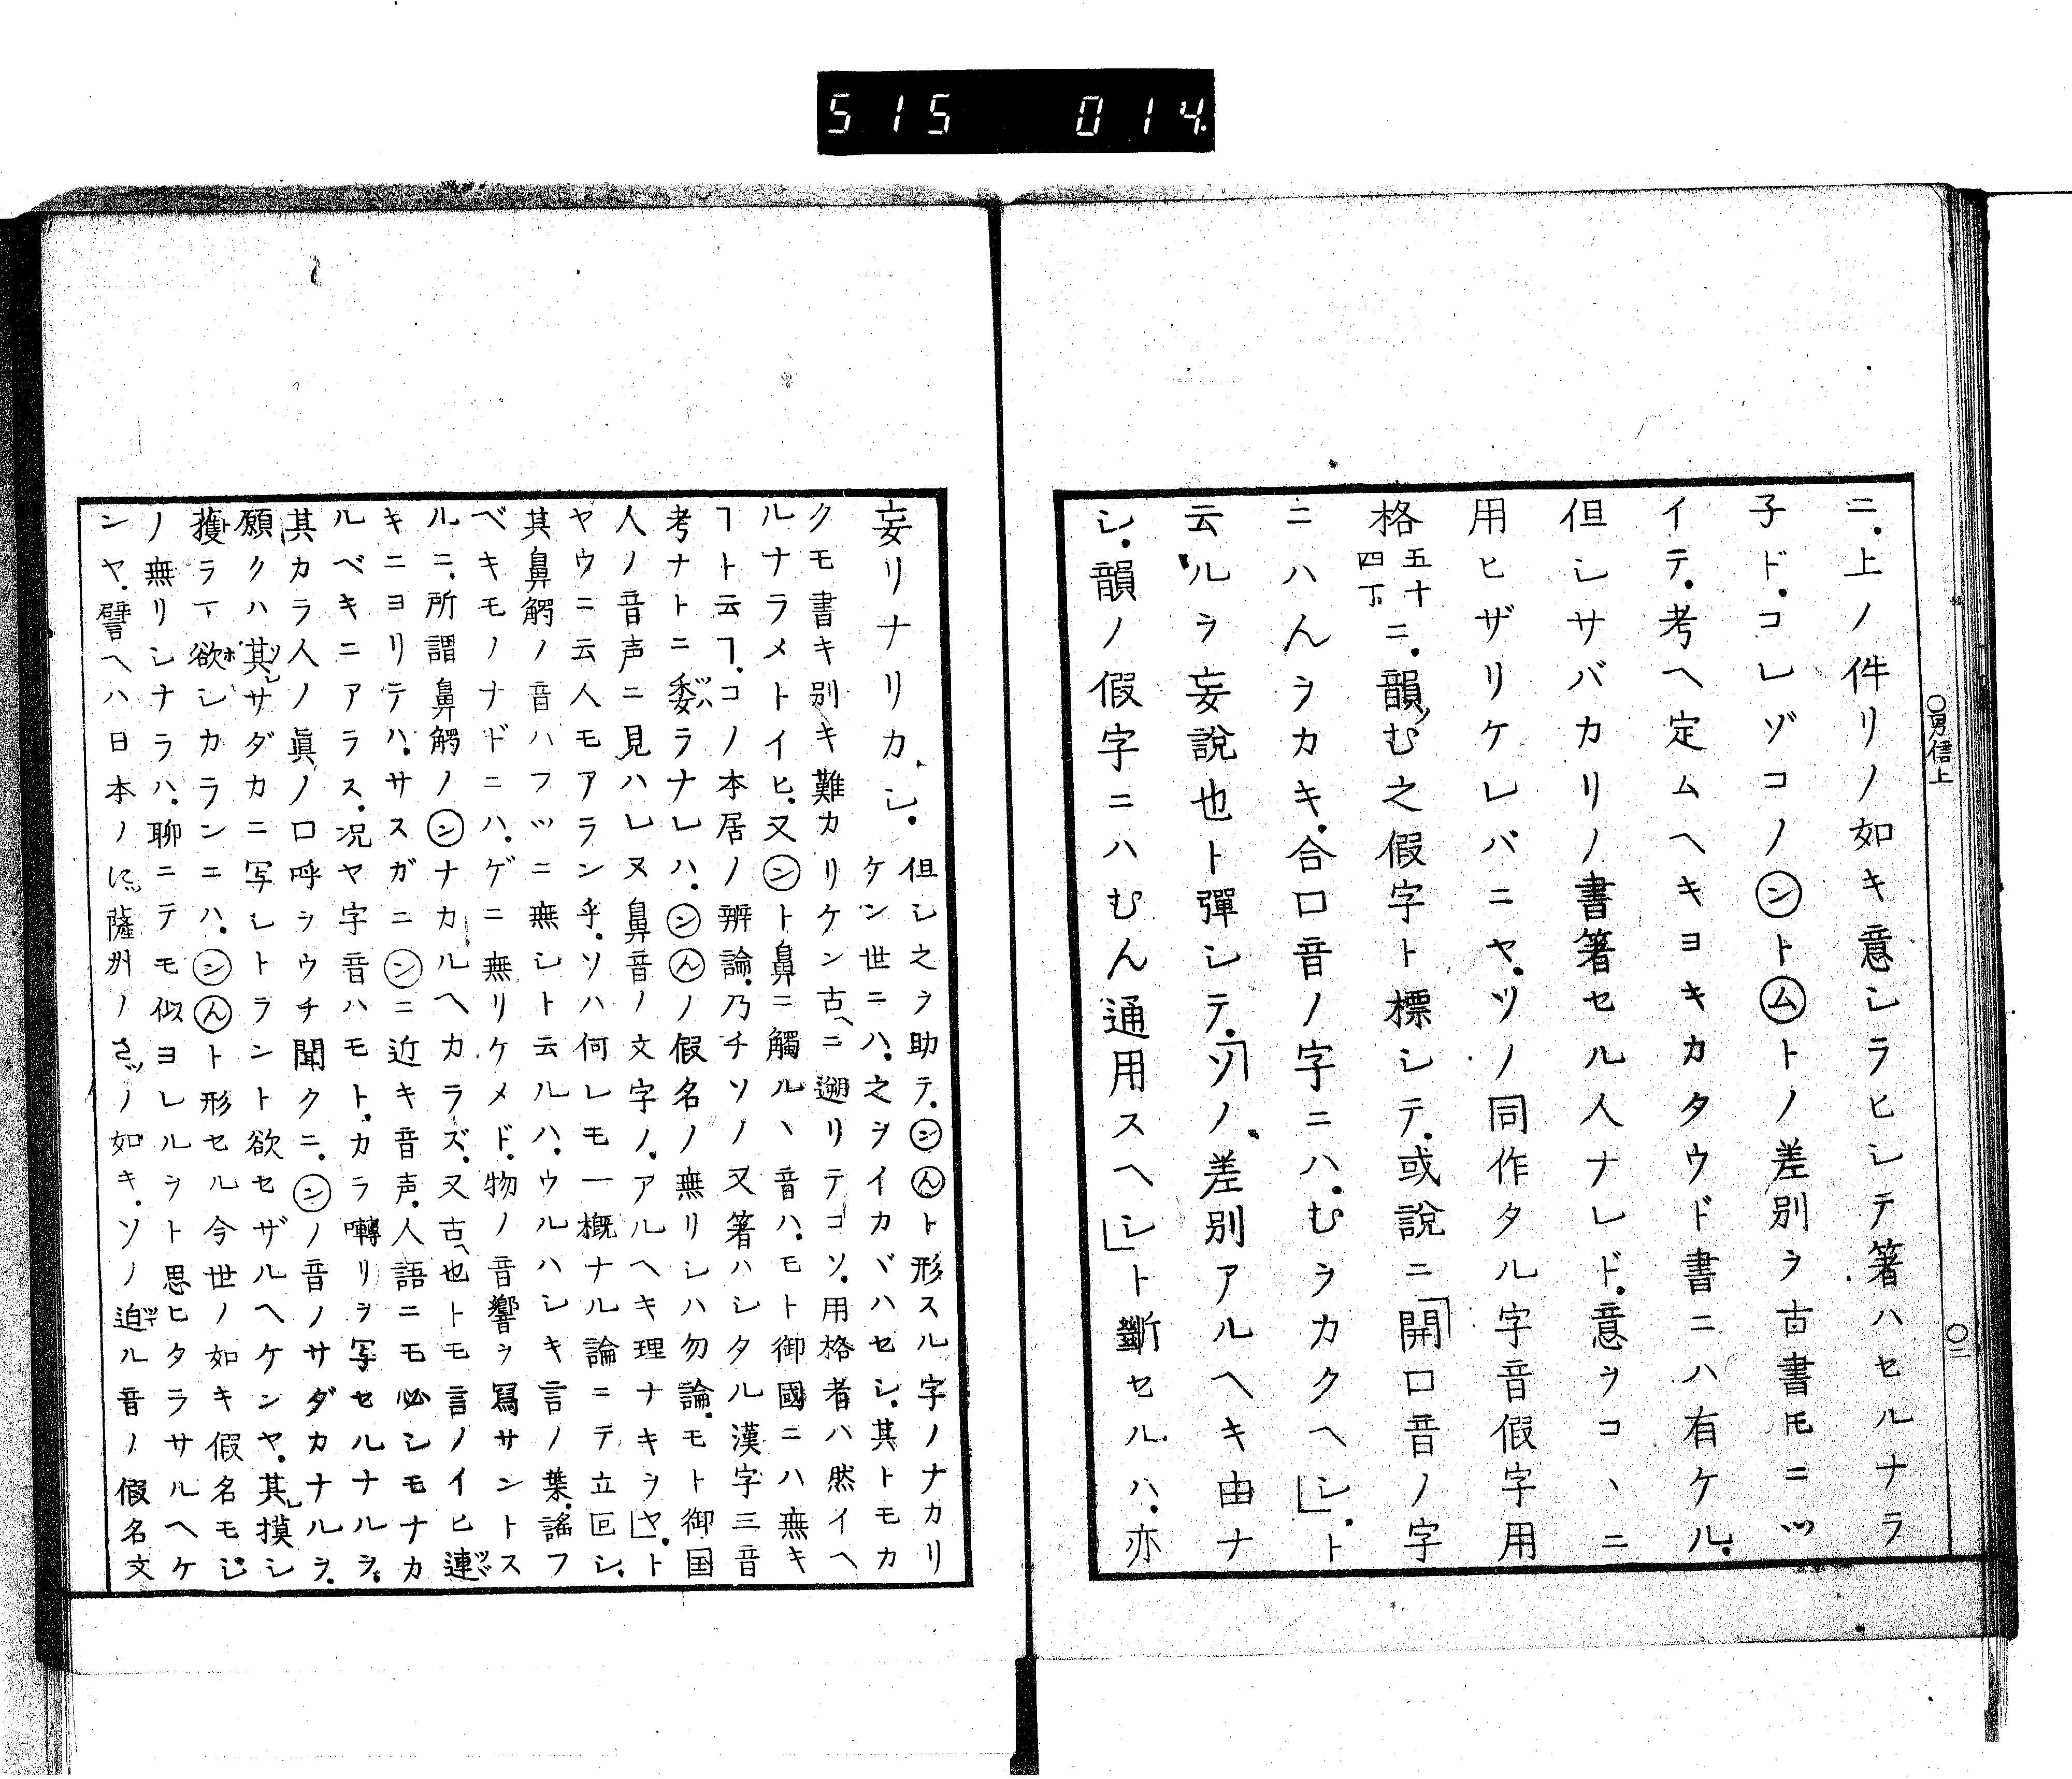 515 014
〇男信上
〇二
ニ.上ノ件リノ如キ意シラヒシテ著ハセルナラ
子ド.コレゾコノ㋛ントムトノ差別ヲ古書𪜈ニツ
イテ.考ヘ定ムヘキヨキカタウド書ニハ有ケル.
但シサバカリノ書著セル人ナレド.意ヲコヽニ
用ヒザリケレバニヤ.ソノ同作タル字音假字用
格五十四丁ニ.韻ノむ之假字ト標シテ.或説ニ「開口音ノ字
ニハんヲカキ.合口音ノ字ニハ.むヲカクヘシ」.ト
云ルヲ妄説也ト彈シテ.「ソノ差別アルヘキ由ナ
シ.韻ノ假字ニハむん通用スヘシ」ト斷セルハ.亦
妄リナリカシ.但シ之ヲ助テ.ンんト形スル字ノナカリ
ケン世ニハ.之ヲイカバハセシ.其トモカ
クモ書キ別キ難カリケン古ヘニ遡リテコソ.用格者ハ然イヘ
ルナラメトイヒ.又ント鼻ニ觸ルヽ音ハ.モト御國ニハ無キ
ヿト云ヿ.コノ本居ノ辨論.乃チソノ又著ハシタル漢字三音
考ナトニ委ラナレハ.ンんノ假名ノ無リシハ勿論.モト御国
人ノ音声ニ見ハレヌ鼻音ノ文字ノ.アルヘキ理ナキヲヤ」.ト
ヤウニ云人モアラン乎.ソハ何レモ一概ナル論ニテ立叵シ.
其鼻觸ノ音ハフツニ無シト云ルハ.ウルハシキ言ノ葉.謠フ
ベキモノナドニハ.ゲニ無リケメド.物ノ音響ヲ寫サントス
ルニ.所謂鼻觸ノンナカルヘカラズ.又古ヘ也トモ言ノイヒ連ツヾ
キニヨリテハ.サスガニンニ近キ音声.人語ニモ必シモナカ
ルベキニアラス.况ヤ字音ハモト.カラ囀リヲ写セルナルヲ.
其カラ人ノ眞ノ口呼ヲウチ聞クニ.ンノ音ノサダカナルヲ.
願クハ其サダカニ写シトラント欲セザルヘケンヤ.其摸シ
獲ラマ欲シカランニハ.ンんト形セル今世ノ如キ假名モジ
ノ無リシナラハ.聊ニテモ似ヨレルヲト思ヒタラサルヘケ
ンヤ.譬ヘハ日本ノに薩州ノさノ如キ.ソノ迫ル音ノ假名文